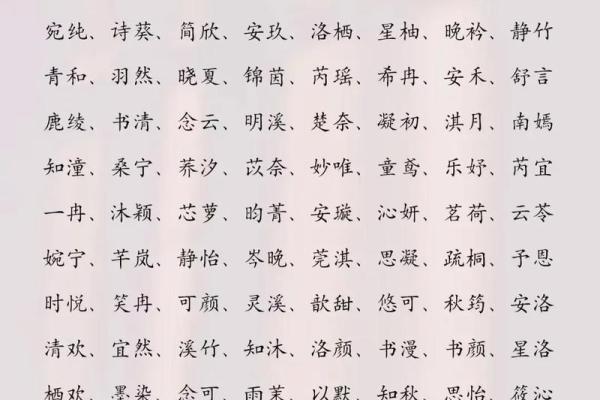 宛纯、诗葵、简欣、安玖、洛栖、星柚、晚衿、静竹
青和、羽然、晓夏、锦茵、芮瑶、希冉、安禾、舒言
鹿绫、书清、念云、明溪、楚奈、凝初、淇月、南嫣
知潼、桑宁、荞汐、苡奈、妙唯、童鸢、乐妤、芮宜
一冉、沐颖、芯萝、昀菁、安璇、沁妍、茗荷、云苓
婉宁、芊岚、静怡、岑晚、莞淇、思凝、疏桐、予恩
时悦、笑冉、可颜、灵溪、歆甜、悠可、秋筠、安洛
清欢、宜然、溪竹、知沐、洛颜、书漫、书颜、星洛
栖欢、墨染、念可、雨茉、以默、知秋、思怡、筱沁